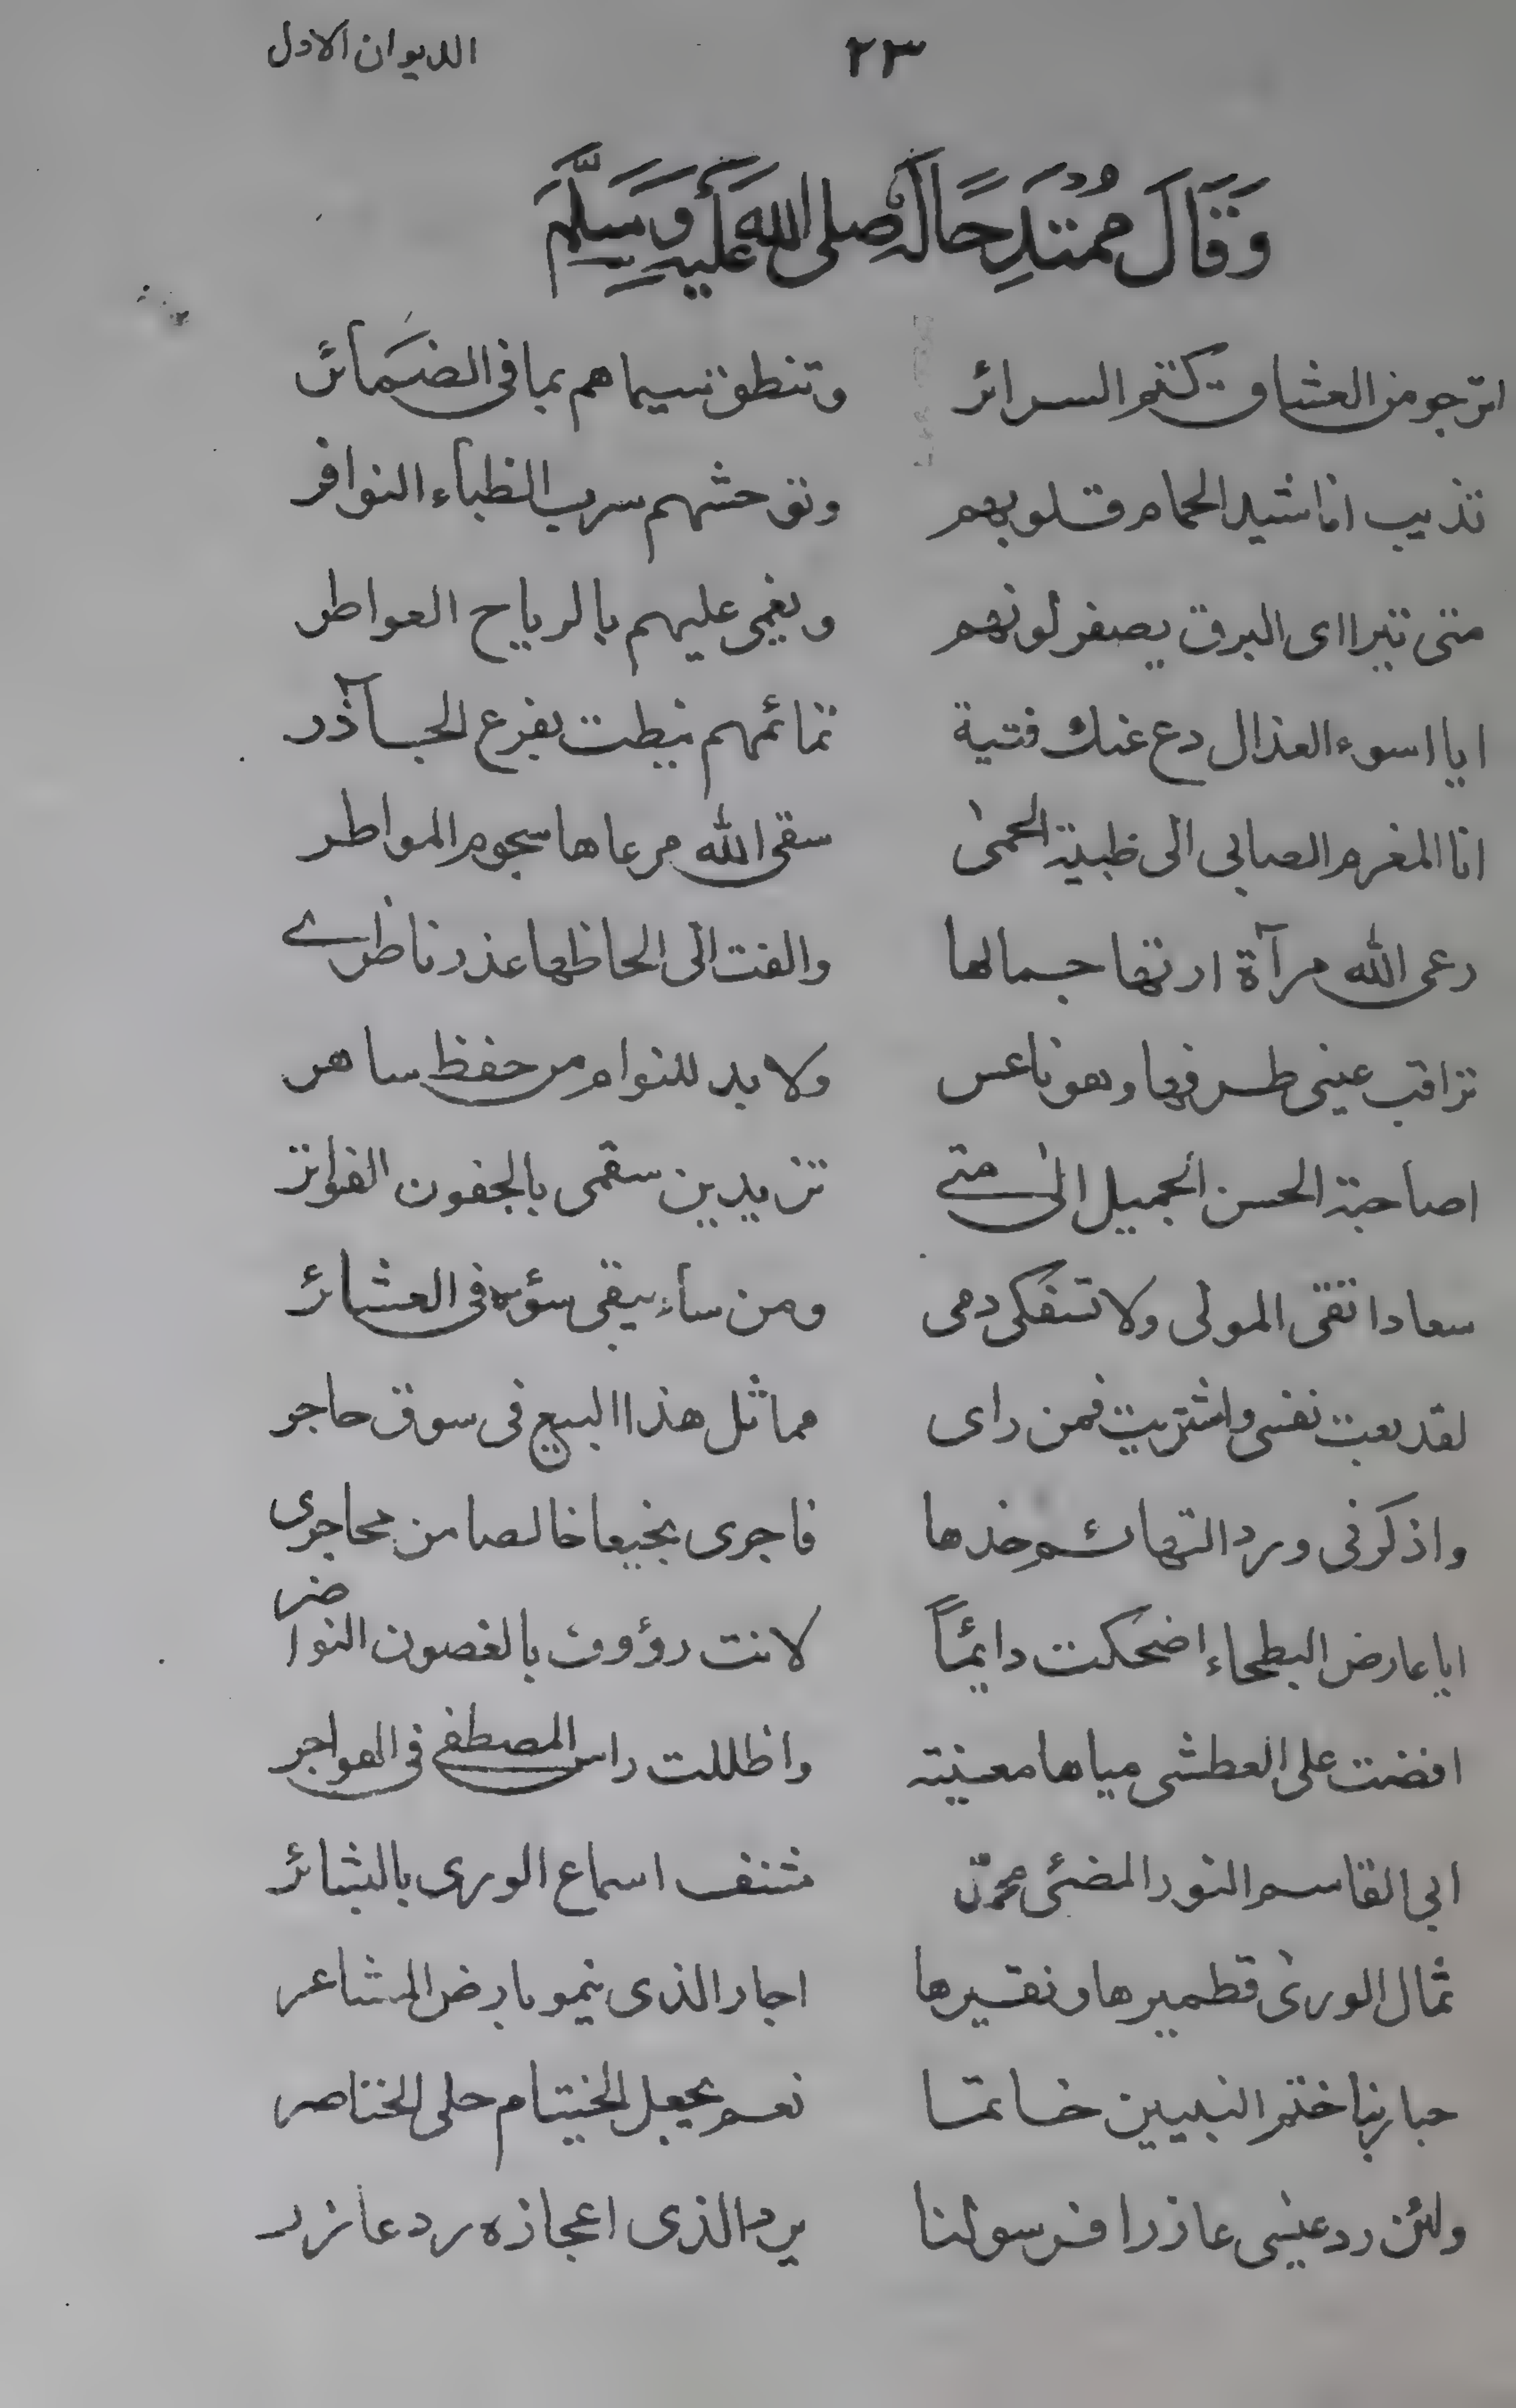 ٢٣ الديوان الاول
وَقَالَ مُمْتَدِحًا لَهُ صلى الله عَلَيْهِ وَسَلَّمَ
اترجو من العشاق كتم السرائر وتنطق سيماهم بما فى الضمائر
تذيب اناشيد الحمام قلوبهم وتوحشهم سرب الظباء النوافر
متى تتراءى البرق يصفر لونهم ويغمى عليهم بالرياح العواطر
ايا اسوء العذال دع عنك فتية تمائمهم نيطت بفرع الجآذر
انا المغرم الصابى الى ظبية الحمىٰ سقى الله مرعاها سجوم المواطر
رعى الله مرآة ارتها جمالها والفت الى الحاظها عذر ناظرى
تراقب عينى طرفها وهو ناعس ولا بد للنوام من حفظ ساهر
اصاحبة الحسن الجميل الىٰ متى تزيدين سقمى بالجفون الفواتر
سعاد اتقى المولى ولا تسفكى دمى ومن ساء يبقى سؤه فى العشائر
لقد بعت نفسى واشتريت فمن راى مماثل هذا البيع فى سوق حاجر
واذكرنى ورد التهائم خدها فاجرى نجيعا خالصا من محاجرى
ايا عارض البطحاء اضحكت دائماً لانت رؤوف بالغصون النواضر
افضت على العطشى مياها معينة واظللت راس المصطفى فى الهواجر
ابى القاسم النور المضئى محمد مشنف اسماع الورى بالبشائر
ثمال الورىٰ قطميرها ونقيرها اجار الذى ينمو بارض المشاعر
حبا ربنا ختم النبيين خاتما نعم يجعل الختيام حلى الخناصر
ولئن رد عيسى عازرا فرسولنا يرد الذى اعجازه رد عازر